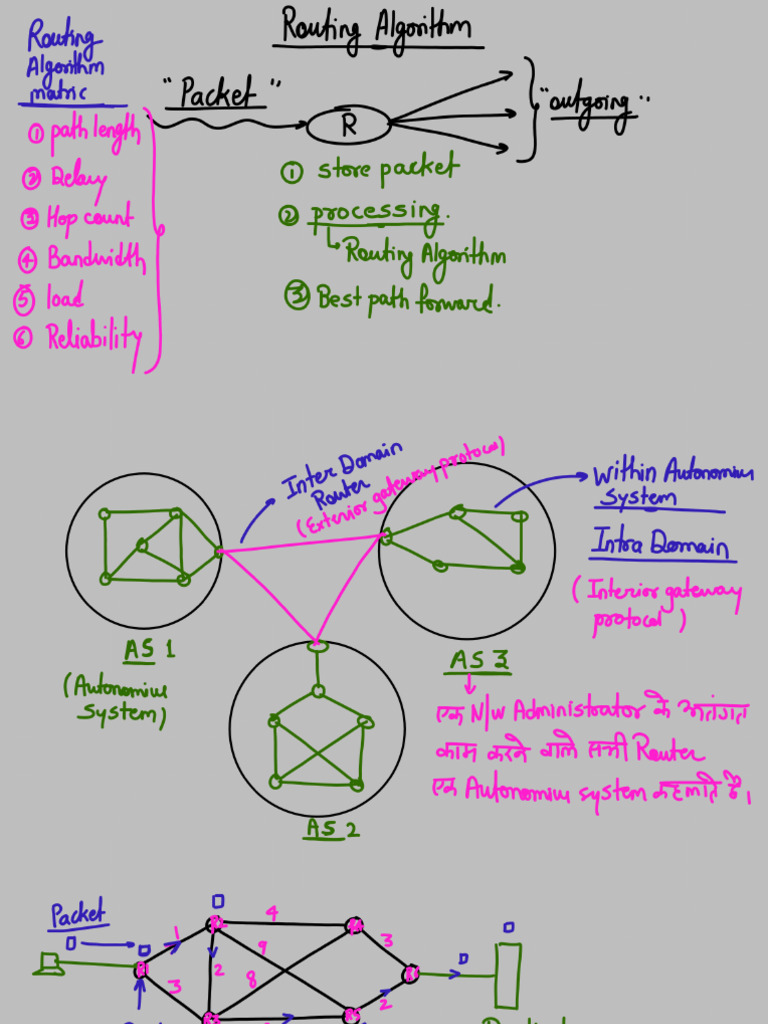 Routing Algorithm
Routing
Algorithm
matric
① path length
② Delay
③ Hop count
④ Bandwidth
⑤ load
⑥ Reliability
"Packet"
R
"outgoing"
① store packet
② processing.
Routing Algorithm
③ Best path forward.
Inter Domain
Router
(Exterior gateway protocol)
within Autonomius
System
Intra Domain
(Interior gateway
protocol)
AS 1
(Autonomius
System)
AS 3
AS 2
एक N/w Administrator के अतंगत
काम करने वाले सभी Router
एक Autonomius system कहलाते है।
Packet
R1
1
3
R2
2
4
9
8
3
2
R5